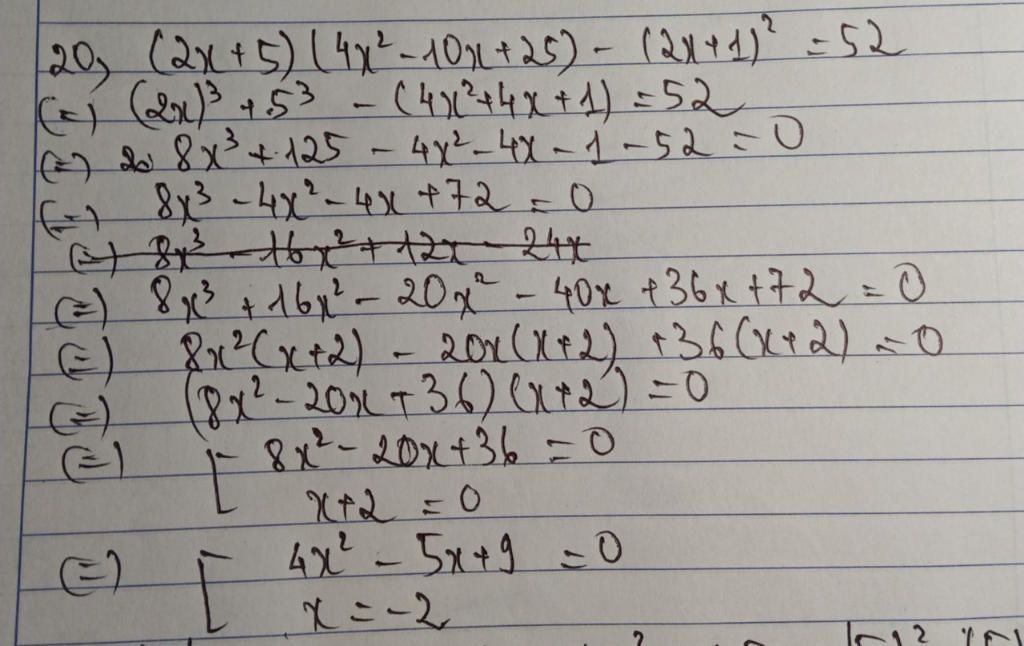 20, (2x+5)(4x²-10x+25) - (2x+1)² = 52
(=) (2x)³ + 5³ - (4x²+4x+1) = 52
(=) 8x³ + 125 - 4x² - 4x - 1 - 52 = 0
(=) 8x³ - 4x² - 4x + 72 = 0
(=) 8x³ - 16x² + 12x - 24x
(=) 8x³ + 16x² - 20x² - 40x + 36x + 72 = 0
(=) 8x²(x+2) - 20x(x+2) + 36(x+2) = 0
(=) (8x² - 20x + 36)(x+2) = 0
(=) [ 8x² - 20x + 36 = 0
x+2 = 0
(=) [ 4x² - 5x + 9 = 0
x = -2